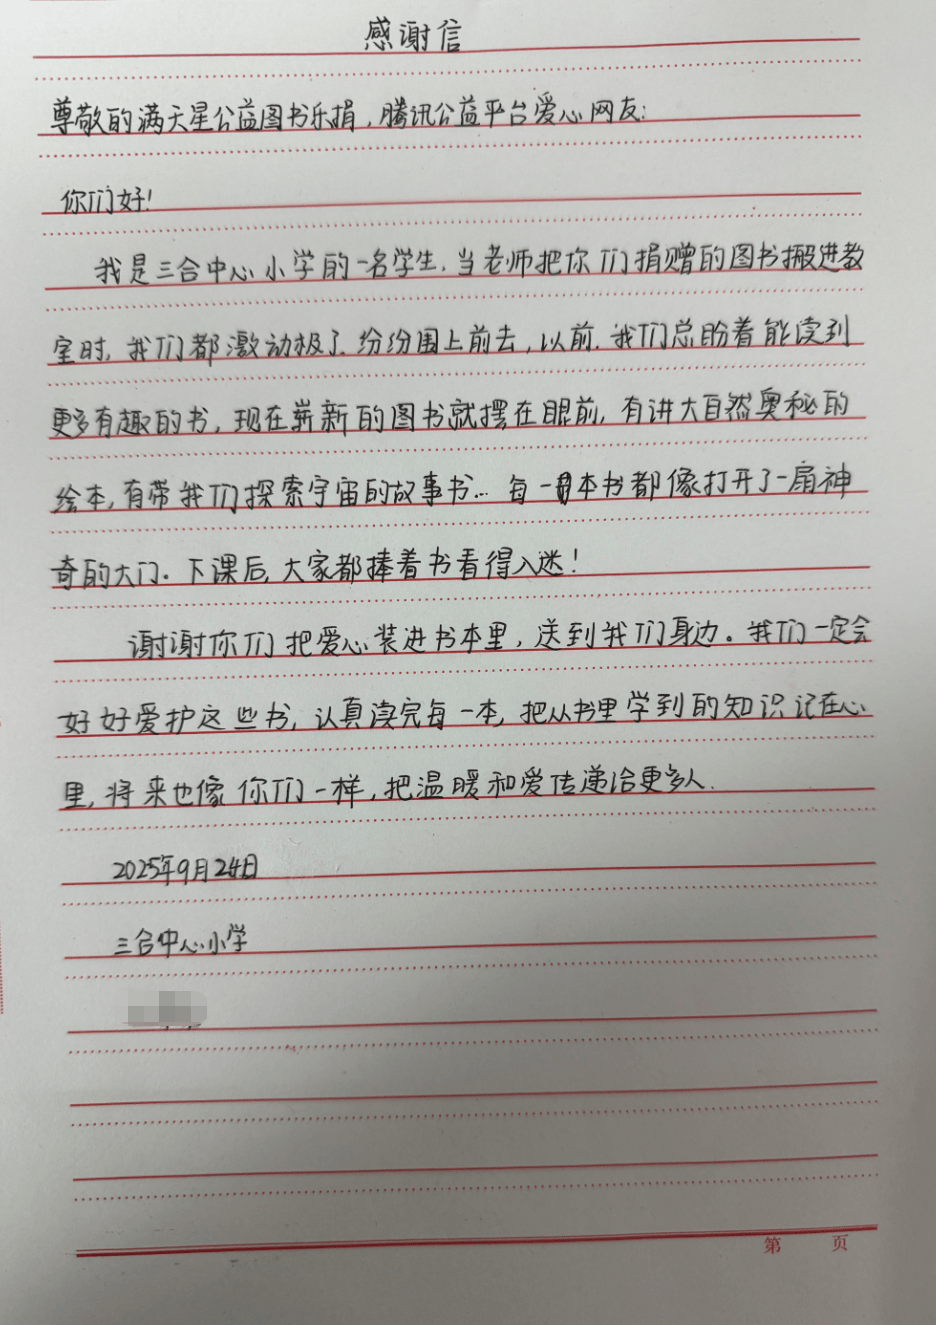 感谢信
尊敬的满天星公益图书乐捐，腾讯公益平台爱心网友：
你们好！
我是三合中心小学的一名学生，当老师把你们捐赠的图书搬进教
室时，我们都激动极了，纷纷围上前去，以前，我们总盼着能读到
更多有趣的书，现在崭新的图书就摆在眼前，有讲大自然奥秘的
绘本，有带我们探索宇宙的故事书… 每一本书都像打开了一扇神
奇的大门。下课后，大家都捧着书看得入迷！
谢谢你们把爱心装进书本里，送到我们身边。我们一定会
好好爱护这些书，认真读完每一本，把从书里学到的知识记在心
里，将来也像你们一样，把温暖和爱传递给更多人.
2025年9月24日
三合中心小学
第 页